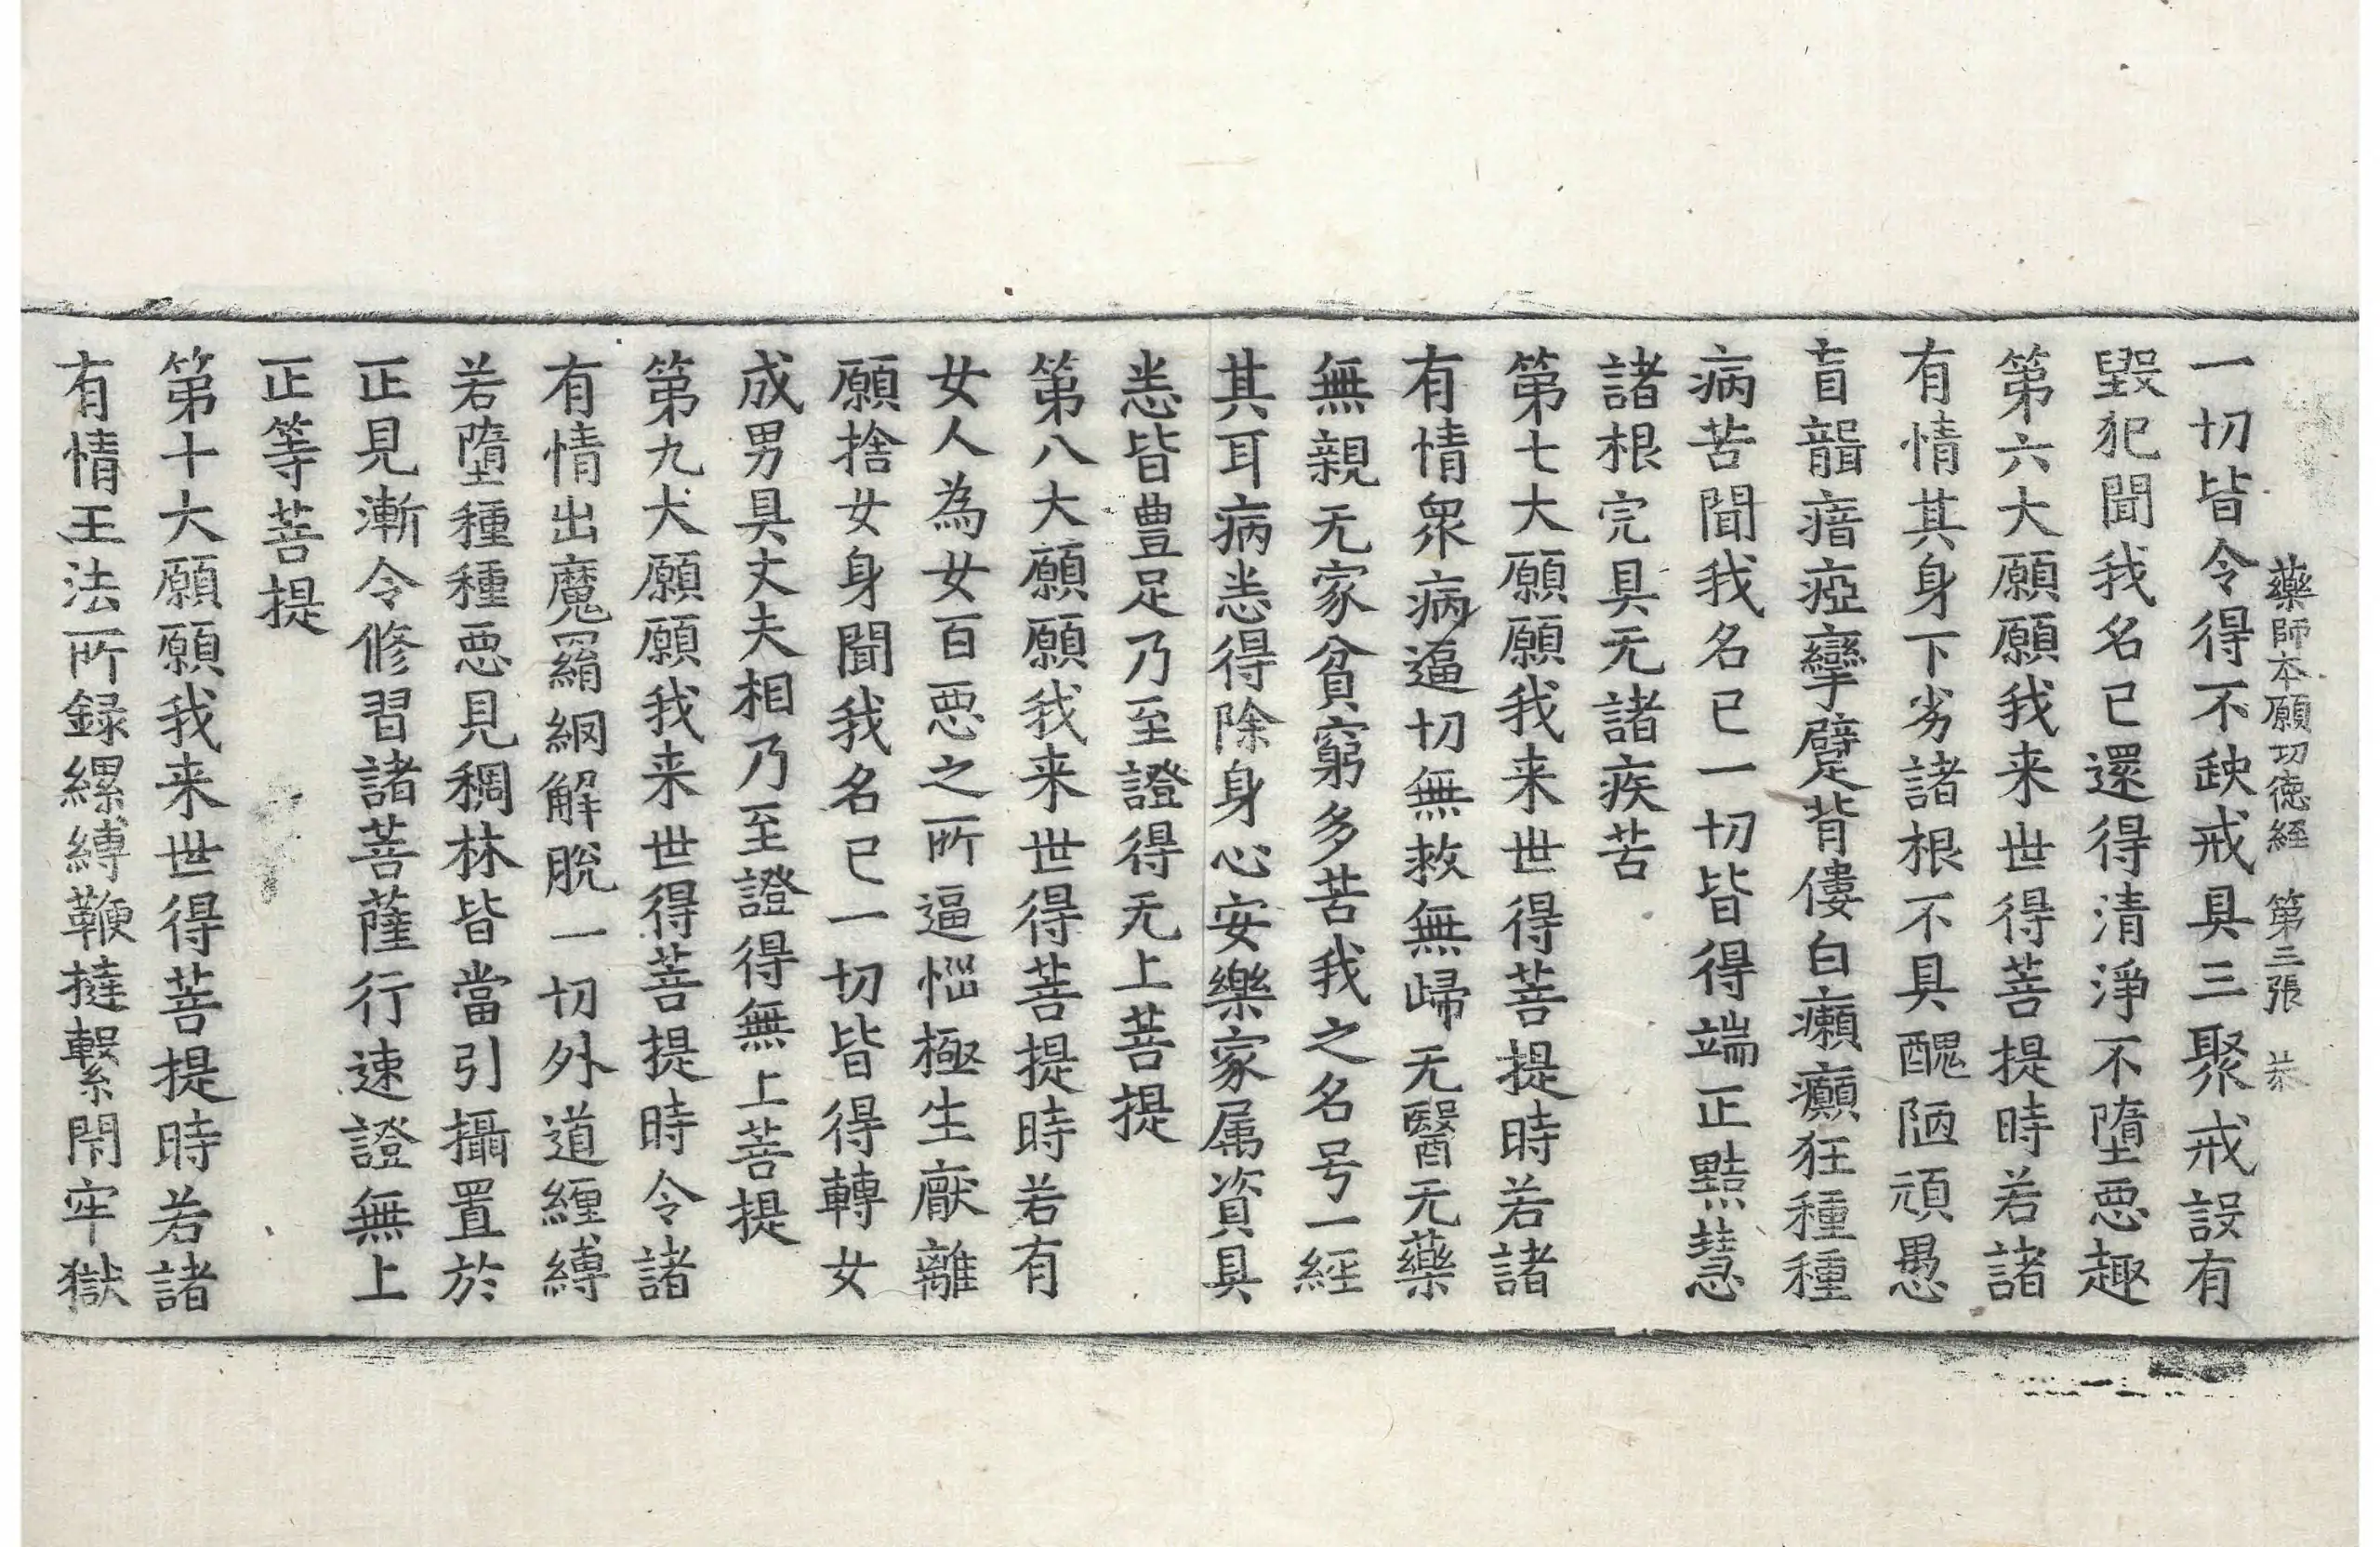 藥師本願功徳經 第三張 恭
一切皆令得不缺戒具三聚戒設有
毀犯聞我名已還得清淨不墮惡趣
第六大願願我来世得菩提時若諸
有情其身下劣諸根不具醜陋頑愚
盲聾瘖瘂攣躄背僂白癩癲狂種種
病苦聞我名已一切皆得端正黠慧
諸根完具无諸疾苦
第七大願願我来世得菩提時若諸
有情衆病逼切無救無歸无醫无藥
無親无家貧窮多苦我之名号一經
其耳病悉得除身心安樂家属資具
悉皆豊足乃至證得无上菩提
第八大願願我来世得菩提時若有
女人為女百惡之所逼惱極生厭離
願捨女身聞我名已一切皆得轉女
成男具丈夫相乃至證得無上菩提
第九大願願我来世得菩提時令諸
有情出魔羂網解脫一切外道纏縛
若墮種種惡見稠林皆當引攝置於
正見漸令修習諸菩薩行速證無上
正等菩提
第十大願願我来世得菩提時若諸
有情王法所録縲縛鞭撻繫閇牢獄